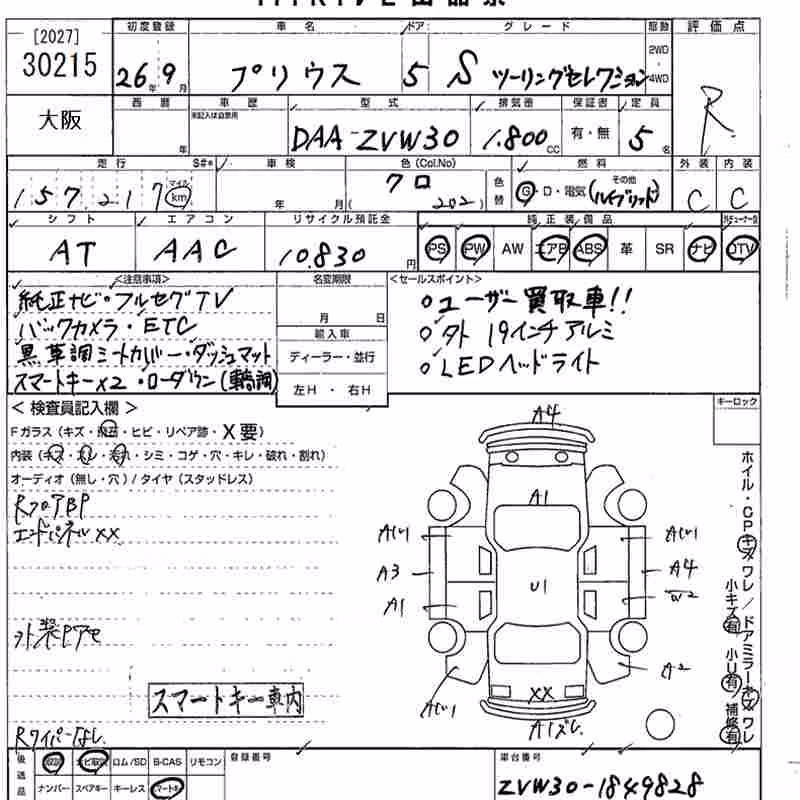 [2027]
30215
大阪
初度登録 車名 ドア グレード 駆動 評価点
26年 9月 プリウス 5 S ツーリングセレクション 2WD・4WD R
西暦 車歴 型式 排気量 保証書 定員
年 未記入は自家用 DAA-ZVW30 1.800CC 有・無 5名
走行 S#* 車検 色(Col.No) 色替 燃料 外装 内装
157217 マイル km 年 月 クロ (202) G・D・電気 その他 (ハイブリッド) C C
シフト エアコン リサイクル預託金 純正装備品
AT AAC 10.830円 PS PW AW エアB ABS 革 SR ナビ DTV
<注意事項> 名変期限 <セールスポイント>
純正ナビ・フルセグTV
バックカメラ・ETC
黒革調シートカバー・ダッシュマット
スマートキーx2・ローダウン(車高調)
月 日
輸入車
ディーラー・並行
左H・右H
○ユーザー買取車!!
○外 19インチアルミ
○LEDヘッドライト
<検査員記入欄> キーロック
Fガラス(キズ・飛石・ヒビ・リペア跡・X要)
内装(キズ・スレ・汚れ・シミ・コゲ・穴・キレ・破れ・割れ)
オーディオ(無し・穴)/タイヤ(スタッドレス)
RフロアBP
エンドパネルXX
外装Pアセ
スマートキー車内
Rワイパーなし
A4
A1
A3
A1
U1
A4
W2
A2
XX
A1ズレ
ホイル・CPキズワレ/ドアミラーキズワレ
小キズ有 小U有 補修有
後送品 ロム/SD B-CAS リモコン
ナンバー スペアキー キーレス スマートキー
登録番号
車台番号
ZVW30-1849828